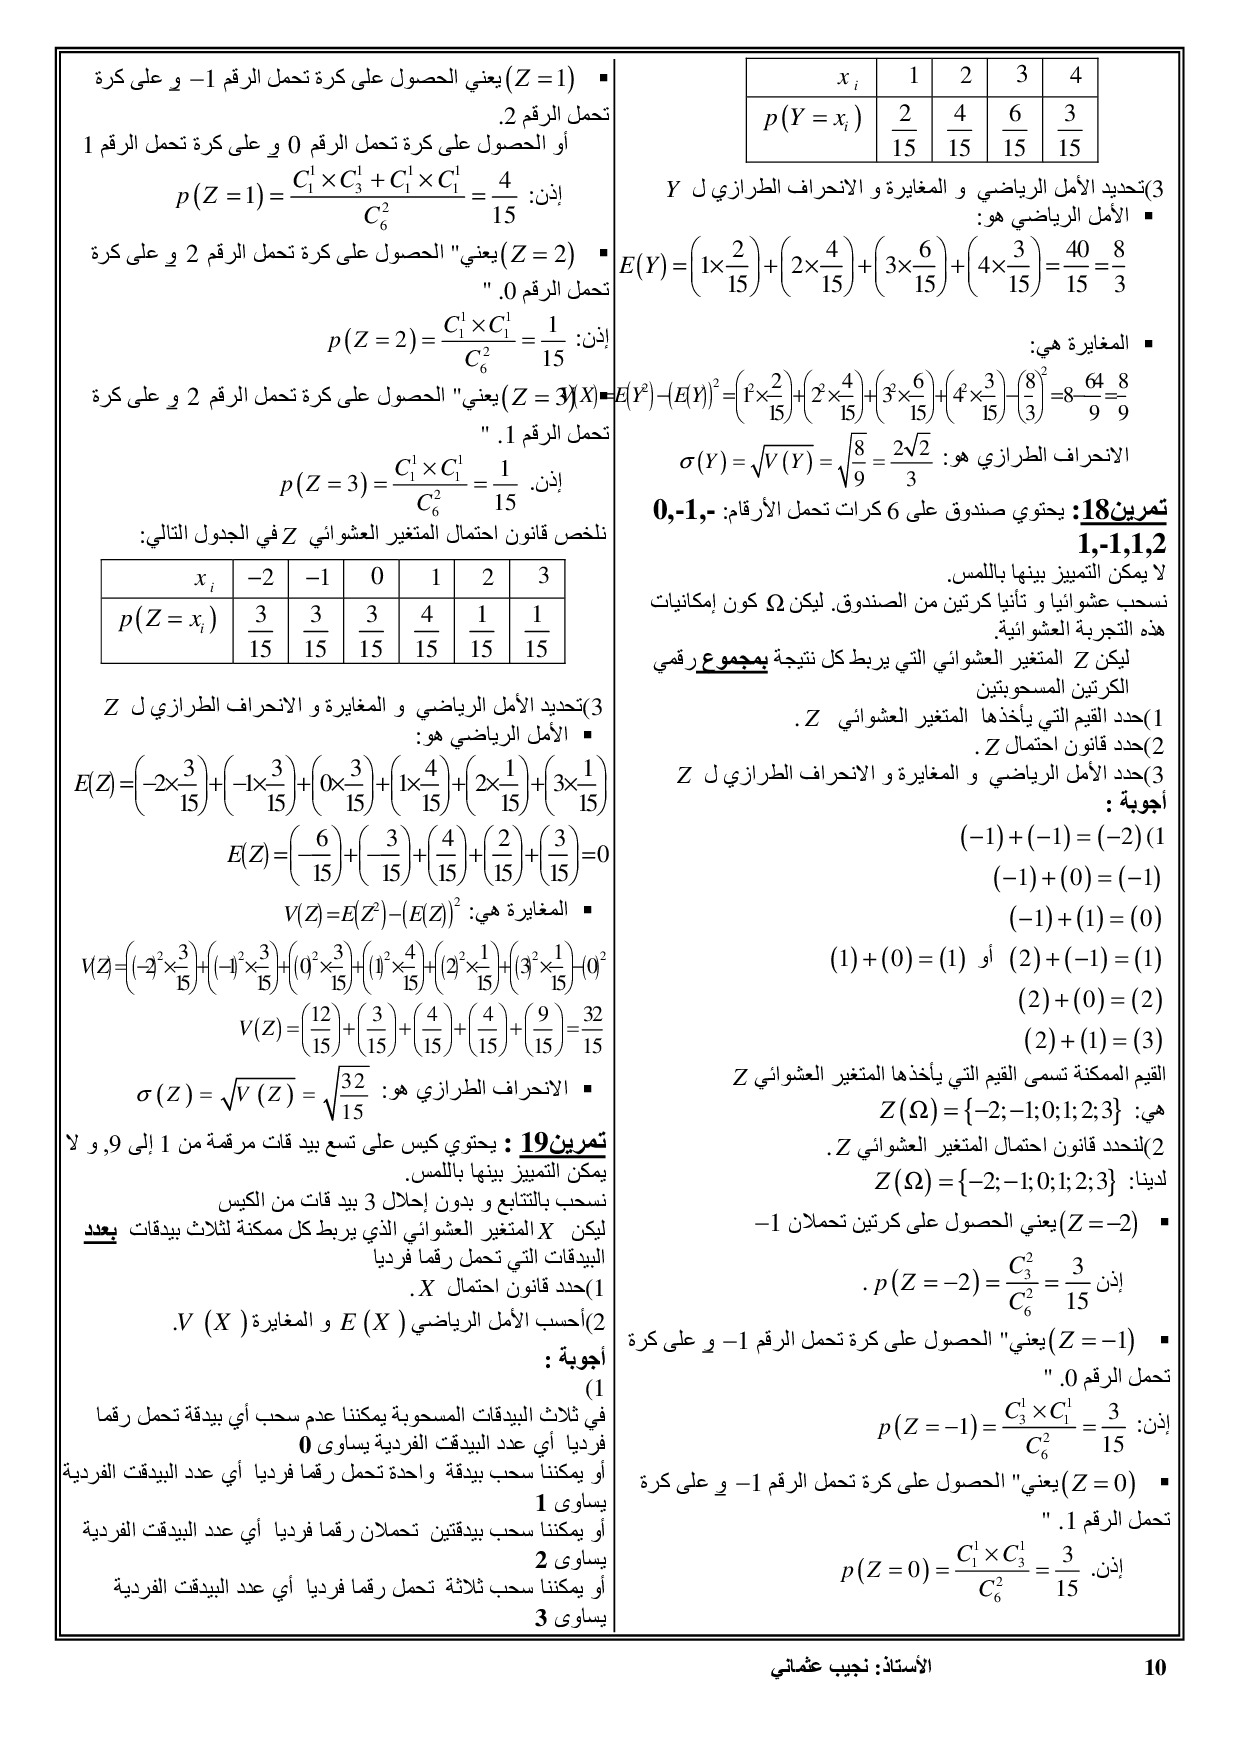 x_i | 1 | 2 | 3 | 4
p(Y = x_i) | 2/15 | 4/15 | 6/15 | 3/15
3)تحديد الأمل الرياضي و المغايرة و الانحراف الطرازي ل Y
▪ الأمل الرياضي هو:
E(Y) = (1×2/15) + (2×4/15) + (3×6/15) + (4×3/15) = 40/15 = 8/3
▪ المغايرة هي:
V(X) = E(Y²) − (E(Y))² = (1²×2/15) + (2²×4/15) + (3²×6/15) + (4²×3/15) − (8/3)² = 8 − 64/9 = 8/9
الانحراف الطرازي هو: σ(Y) = √V(Y) = √(8/9) = 2√2/3
تمرين18: يحتوي صندوق على 6 كرات تحمل الأرقام: -0,-1,
1,-1,1,2
لا يمكن التمييز بينها باللمس.
نسحب عشوائيا و تأنيا كرتين من الصندوق. ليكن Ω كون إمكانيات
هذه التجربة العشوائية.
ليكن Z المتغير العشوائي التي يربط كل نتيجة بمجموع رقمي
الكرتين المسحوبتين
1)حدد القيم التي يأخذها المتغير العشوائي Z .
2)حدد قانون احتمال Z .
3)حدد الأمل الرياضي و المغايرة و الانحراف الطرازي ل Z
أجوبة :
1) (−1) + (−1) = (−2)
(−1) + (0) = (−1)
(−1) + (1) = (0)
(2) + (−1) = (1) أو (1) + (0) = (1)
(2) + (0) = (2)
(2) + (1) = (3)
القيم الممكنة تسمى القيم التي يأخذها المتغير العشوائي Z
هي: Z(Ω) = {−2; −1; 0; 1; 2; 3}
2)لنحدد قانون احتمال المتغير العشوائي Z .
لدينا: Z(Ω) = {−2; −1; 0; 1; 2; 3}
▪ (Z = −2) يعني الحصول على كرتين تحملان −1
إذن p(Z = −2) = C_3^2 / C_6^2 = 3/15 .
▪ (Z = −1) يعني" الحصول على كرة تحمل الرقم −1 و على كرة
تحمل الرقم 0. "
إذن: p(Z = −1) = C_3^1 × C_1^1 / C_6^2 = 3/15
▪ (Z = 0) يعني" الحصول على كرة تحمل الرقم −1 و على كرة
تحمل الرقم 1. "
إذن. p(Z = 0) = C_1^1 × C_3^1 / C_6^2 = 3/15
▪ (Z = 1) يعني الحصول على كرة تحمل الرقم −1 و على كرة
تحمل الرقم 2.
أو الحصول على كرة تحمل الرقم 0 و على كرة تحمل الرقم 1
إذن: p(Z = 1) = C_1^1 × C_3^1 + C_1^1 × C_1^1 / C_6^2 = 4/15
▪ (Z = 2) يعني" الحصول على كرة تحمل الرقم 2 و على كرة
تحمل الرقم 0. "
إذن: p(Z = 2) = C_1^1 × C_1^1 / C_6^2 = 1/15
▪ (Z = 3) يعني" الحصول على كرة تحمل الرقم 2 و على كرة
تحمل الرقم 1. "
إذن. p(Z = 3) = C_1^1 × C_1^1 / C_6^2 = 1/15
نلخص قانون احتمال المتغير العشوائي Z في الجدول التالي:
x_i | −2 | −1 | 0 | 1 | 2 | 3
p(Z = x_i) | 3/15 | 3/15 | 3/15 | 4/15 | 1/15 | 1/15
3)تحديد الأمل الرياضي و المغايرة و الانحراف الطرازي ل Z
▪ الأمل الرياضي هو:
E(Z) = (−2×3/15) + (−1×3/15) + (0×3/15) + (1×4/15) + (2×1/15) + (3×1/15)
E(Z) = (−6/15) + (−3/15) + (4/15) + (2/15) + (3/15) = 0
▪ المغايرة هي: V(Z) = E(Z²) − (E(Z))²
V(Z) = ((−2)²×3/15) + ((−1)²×3/15) + ((0)²×3/15) + ((1)²×4/15) + ((2)²×1/15) + ((3)²×1/15) − (0)²
V(Z) = (12/15) + (3/15) + (4/15) + (4/15) + (9/15) = 32/15
▪ الانحراف الطرازي هو: σ(Z) = √V(Z) = √(32/15)
تمرين19 : يحتوي كيس على تسع بيد قات مرقمة من 1 إلى 9, و لا
يمكن التمييز بينها باللمس.
نسحب بالتتابع و بدون إحلال 3 بيد قات من الكيس
ليكن X المتغير العشوائي الذي يربط كل ممكنة لثلاث بيدقات بعدد
البيدقات التي تحمل رقما فرديا
1)حدد قانون احتمال X .
2)أحسب الأمل الرياضي E(X) و المغايرة V(X).
أجوبة :
1)
في ثلاث البيدقات المسحوبة يمكننا عدم سحب أي بيدقة تحمل رقما
فرديا أي عدد البيدقت الفردية يساوى 0
أو يمكننا سحب بيدقة واحدة تحمل رقما فرديا أي عدد البيدقت الفردية
يساوى 1
أو يمكننا سحب بيدقتين تحملان رقما فرديا أي عدد البيدقت الفردية
يساوى 2
أو يمكننا سحب ثلاثة تحمل رقما فرديا أي عدد البيدقت الفردية
يساوى 3
10 الأستاذ: نجيب عثماني